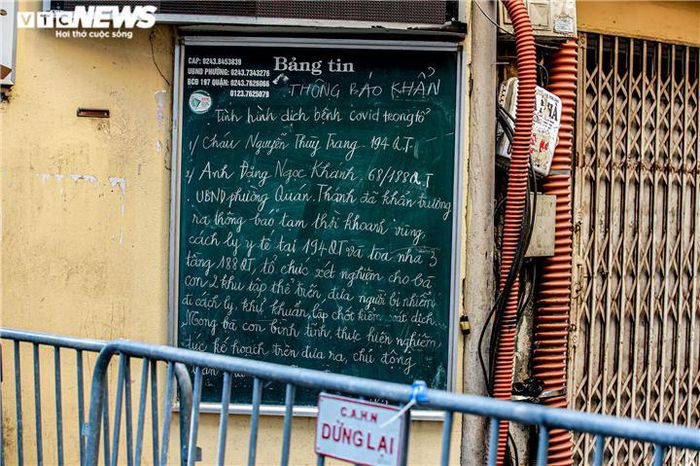 VTC NEWS
Hơi thở cuộc sống
CAP: 0243.8453839
UBND PHƯỜNG: 0243.7343276
BCĐ 197 QUẬN: 0243.7626066
0123.7625079
Bảng tin
THÔNG BÁO KHẨN
Tình hình dịch bệnh covid trong tổ
1/ Cháu Nguyễn Thùy Trang - 194 Q.T
2/ Anh Đặng Ngọc Khánh, 68/188 Q.T
. UBND phường Quán Thánh đã khẩn trương
ra thông báo tạm thời khoanh vùng,
cách ly y tế tại 194 QT và tòa nhà 3
tầng 188 QT, tổ chức xét nghiệm cho bà
con 2 khu tập thể trên, đưa người bị nhiễm
đi cách ly, khử khuẩn, lập chốt kiểm soát dịch.
Mong bà con bình tĩnh, thực hiện nghiêm
túc kế hoạch trên đưa ra, chủ động
C.A.H.N
DỪNG LẠI